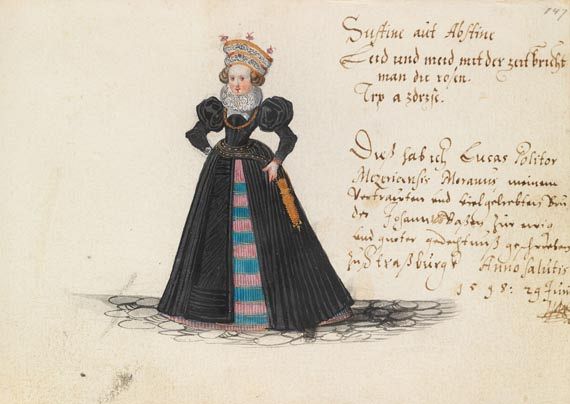 147
Sustine aut Abstine
Leid und meid mit der zeit bricht
man die rosen.
Trp a zdrzse.
Dieß hab ich Lucas Politor
Mezericensis Moravus meinem
Vertrauten und vielgeliebten Bru
der Johann zur ewig
und guter gedechtnuß geschrieben
zu Straßburgk Anno salutis
1598: 29 Juni